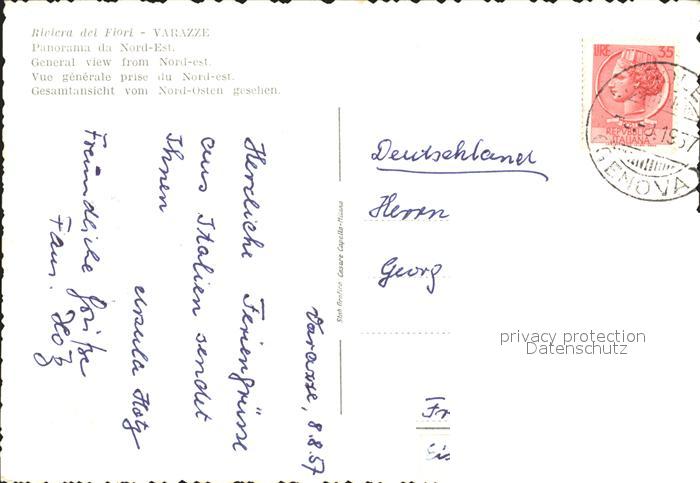 Riviera dei Fiori - VARAZZE
Panorama da Nord-Est.
General view from Nord-est.
Vue générale prise du Nord-est.
Gesamtansicht vom Nord-Osten gesehen.
Varazze, 8.8.57
Herzliche Feriengrüsse
aus Italien sendet
Ihnen
Ursula Hotz
Freundliche Grüsse
Fam. Hotz
Stab. Grafico Cesare Capello-Milano
LIRE 35
REPUBBLICA
ITALIANA
1957
GENOVA
Deutschland
Herrn
Georg
privacy protection
Datenschutz
Fr
Eis